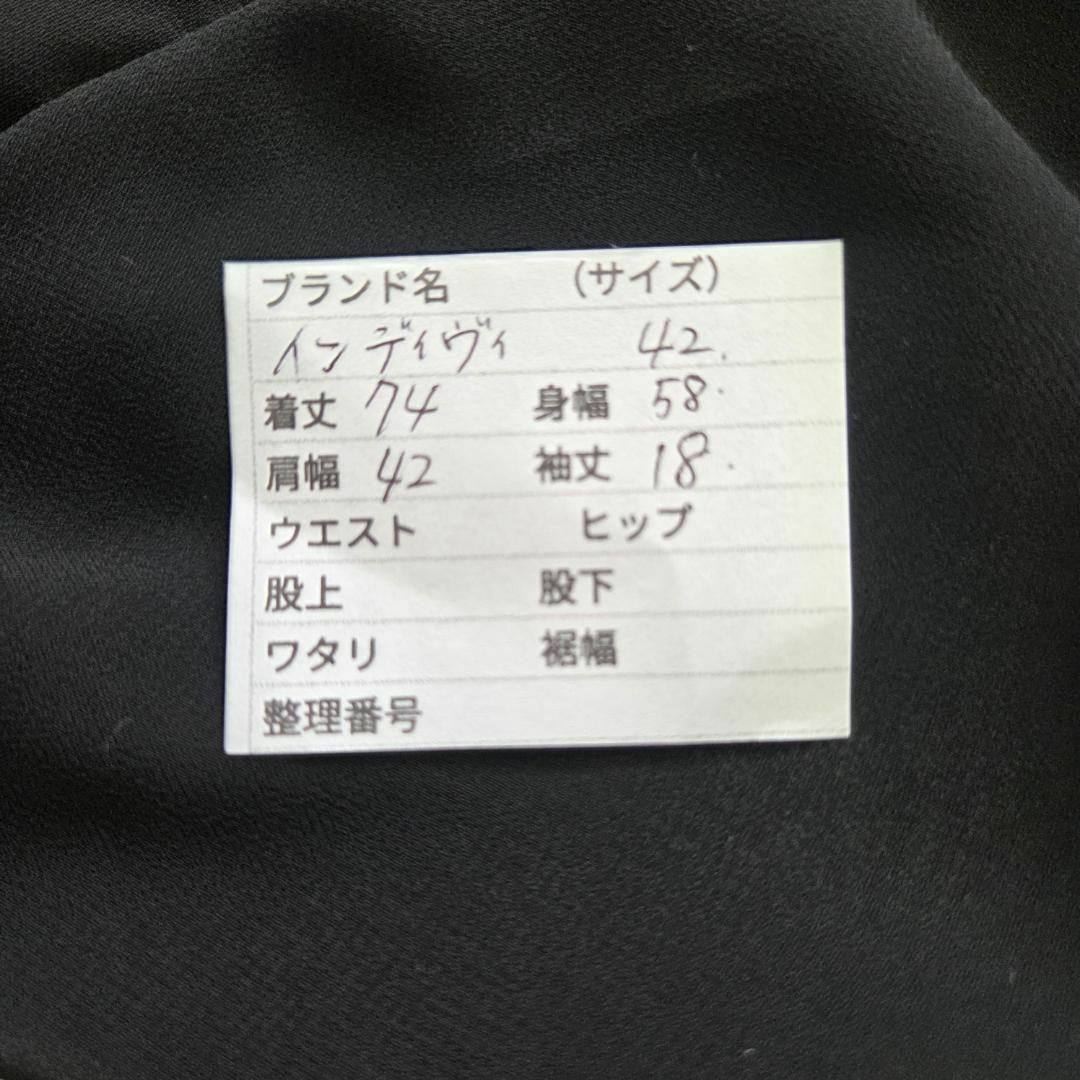 ブランド名 (サイズ)
インディヴィ 42.
着丈 74 身幅 58.
肩幅 42 袖丈 18.
ウエスト ヒップ
股上 股下
ワタリ 裾幅
整理番号